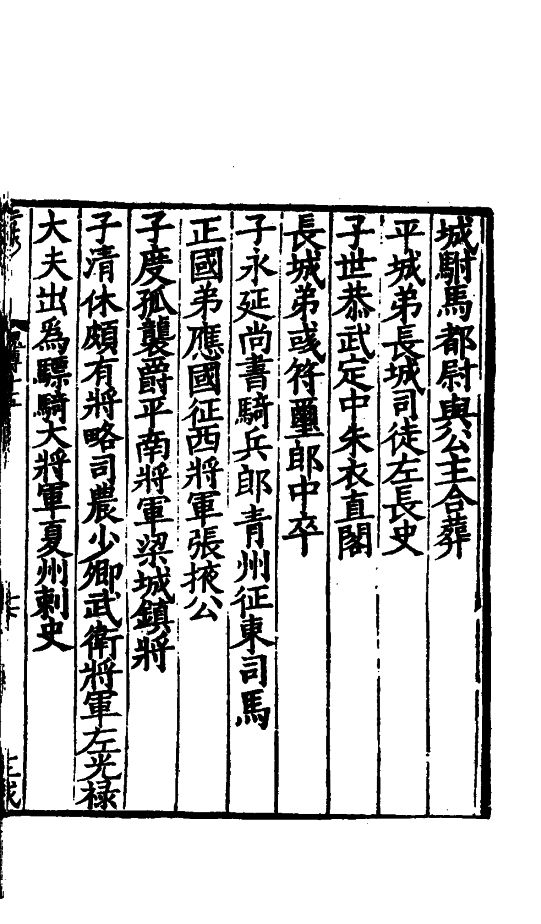 城駙馬都尉與公主合葬
平城弟長城司徒左長史
子世恭武定中朱衣直閤
長城弟彧符璽郎中卒
子永延尚書騎兵郎青州征東司馬
正國弟應國征西將軍張掖公
子度孤襲爵平南將軍梁城鎮將
子清休頗有將略司農少卿武衛將軍左光祿
大夫出為驃騎大將軍夏州刺史